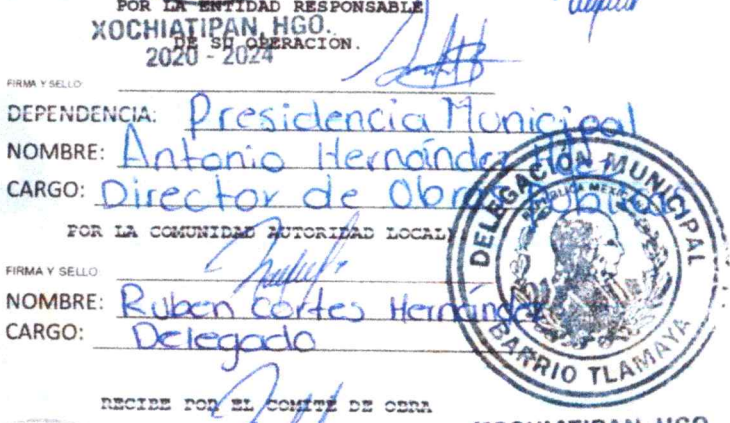 POR LA ENTIDAD RESPONSABLE
XOCHIATIPAN, HGO.
DE SU OPERACIÓN.
2020 - 2024
FIRMA Y SELLO
DEPENDENCIA: Presidencia Municipal
NOMBRE: Antonio Hernández Hdez
CARGO: Director de Obras Públicas
POR LA COMUNIDAD AUTORIDAD LOCAL
FIRMA Y SELLO
NOMBRE: Ruben Cortes Hernández
CARGO: Delegado
DELEGACIÓN MUNICIPAL
REPUBLICA MEXICANA
BARRIO TLAMAYA
RECIBE POR EL COMITÉ DE OBRA
XOCHIATIPAN, HGO.